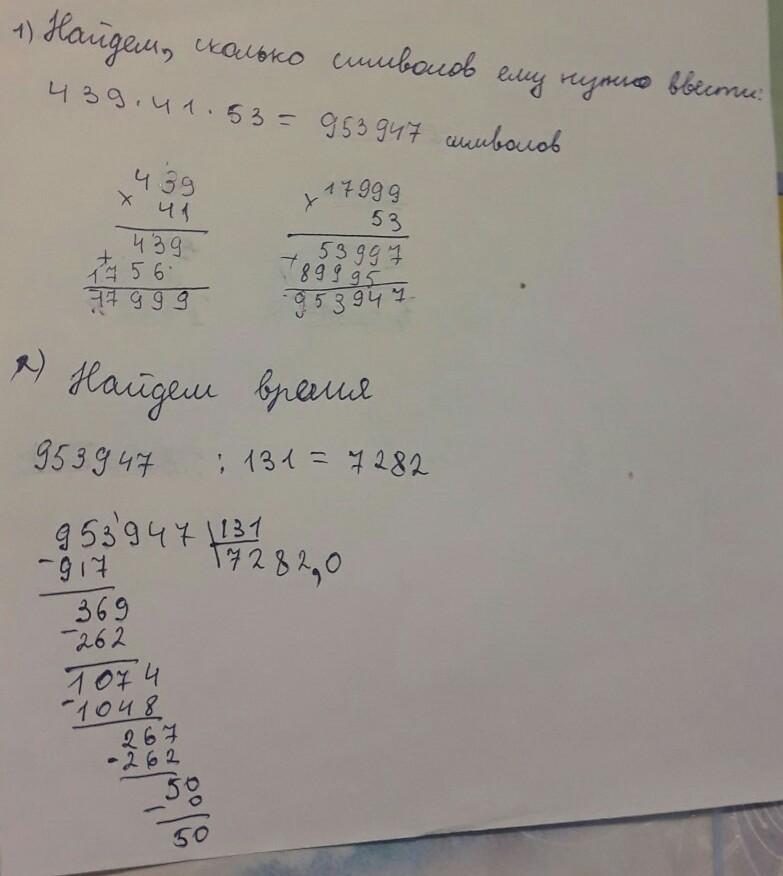 1) Найдем, сколько символов ему нужно ввести:
439 · 41 · 53 = 953947 символов
439
× 41
439
+
1756
17999
17999
× 53
+ 53997
89995
953947
2) Найдем время
953947 : 131 = 7282
953947 131
- 917 7282,0
369
- 262
1074
- 1048
267
- 262
50
- 0
50